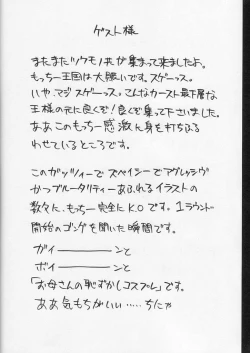 ゲスト様
またまたツワモノ共が集まって来ましたよ。
もっちー王国は大賑いです。スゲーッス。
いや、マジスゲーッス。こんなカースト最下層な
王様の元に良くぞ！良くぞ集って下さいました。
ああこのもっちー感激に身を打ちふる
わせているところです。
このガッツィーでスペイシーでアグレッシヴ
かつブルータリティーあふれるイラストの
数々に、もっちー完全にK.Oです。1ラウンド
開始のゴングを聞いた瞬間です。
ガイ――――ンと
ボイ――――ンと
「お母さんの恥ずかしコスプレ」です。
ああ気もちがいい……ちにゃ